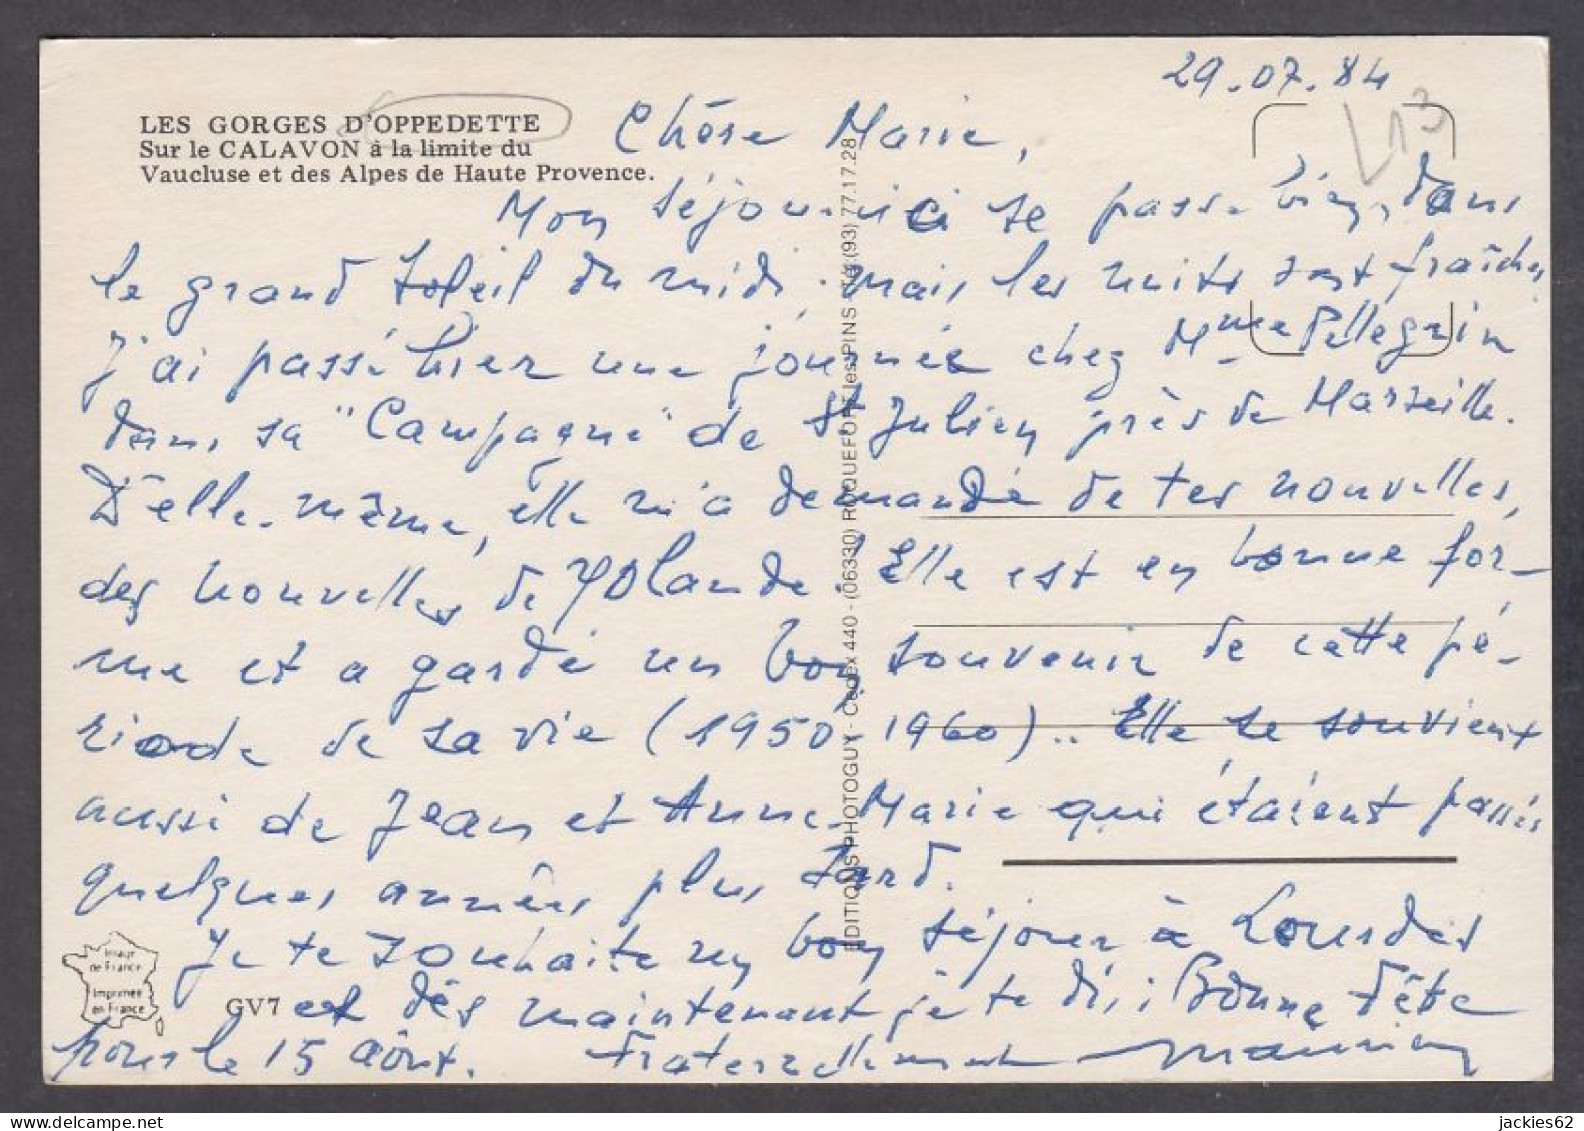 29.07.84
L13
LES GORGES D'OPPEDETTE
Sur le CALAVON à la limite du
Vaucluse et des Alpes de Haute Provence.
Chère Marie,
Mon séjour ici se passe bien, dans
le grand soleil du midi. mais les nuits sont fraîches
J'ai passé hier une journée chez Mme Pellegrin
dans sa "Campagne" de St Julien près de Marseille.
D'elle-même, elle m'a demandé de tes nouvelles,
des nouvelles de Yolande. Elle est en bonne for-
me et a gardé un bon souvenir de cette pé-
riode de sa vie (1950-1960).. Elle se souvient
aussi de Jean et Anne-Marie qui étaient passés
quelques années plus tard.
Je te souhaite un bon séjour à Lourdes
et dès maintenant je te dis: Bonne Fête
pour le 15 août. Fraternellement
EDITIONS PHOTOGUY - Cedex 440 - (06330) ROQUEFORT les PINS (93) 77.17.28
Image
de France
Imprimée
en France
GV7
jackies62